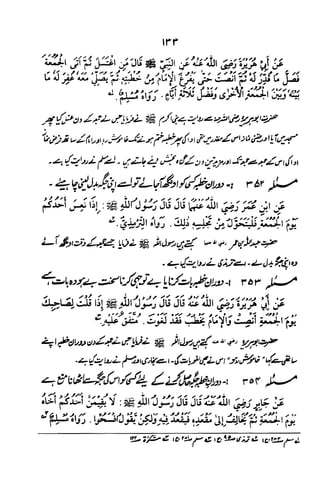 ١٣٣
عَنْ أَبِيْ هُرَيْرَةَ رَضِيَ اللهُ عَنْهُ عَنِ النَّبِيِّ ﷺ قَالَ مَنِ اغْتَسَلَ ثُمَّ أَتَى الْجُمُعَةَ
فَصَلَّى مَا قُدِّرَ لَهُ ثُمَّ أَنْصَتَ حَتَّى يَفْرُغَ الْإِمَامُ مِنْ خُطْبَتِهِ ثُمَّ يُصَلِّيَ مَعَهُ غُفِرَ لَهُ مَا
بَيْنَهُ وَبَيْنَ الْجُمُعَةِ الْأُخْرَى وَفَضْلُ ثَلَاثَةِ أَيَّامٍ . رَوَاهُ مُسْلِمٌ
حضرت ابوہریرہ رضی اللہ عنہ سے روایت ہے نبی اکرم ﷺ نے فرمایا جس نے جمعہ کے دن غسل کیا پھر
مسجد میں آیا اور جتنی نماز اس کے مقدر میں تھی ادا کی پھر خطبہ ختم ہونے تک خاموش رہا اور امام کے ساتھ فرض نماز
ادا کی اس کے جمعہ سے جمعہ تک اور مزید تین دن کے گناہ بخش دیئے جاتے ہیں۔ اسے مسلم نے روایت کیا ہے۔
مسئلہ ٣٥٢ :- دوران خطبہ کسی کو اونگھ آجائے تو اسے اپنی جگہ بدل لینی چاہیئے۔
عَنِ ابْنِ عُمَرَ رَضِيَ اللهُ عَنْهُمَا قَالَ قَالَ رَسُوْلُ اللهِ ﷺ : إِذَا نَعِسَ أَحَدُكُمْ
يَوْمَ الْجُمُعَةِ فَلْيَتَحَوَّلْ مِنْ مَجْلِسِهِ ذٰلِكَ . رَوَاهُ التِّرْمِذِيُّ
حضرت عبداللہ بن عمر کہتے ہیں رسول اللہ ﷺ نے فرمایا جسے جمعہ کے وقت اونگھ آئے
وہ اپنی جگہ بدل لے۔ اسے ترمذی نے روایت کیا ہے۔
مسئلہ ٣٥٣ :- دوران خطبہ بات کرنا یا بے توجہی کرنا سخت بے ہودہ بات ہے۔
عَنْ أَبِيْ هُرَيْرَةَ رَضِيَ اللهُ عَنْهُ قَالَ قَالَ رَسُوْلُ اللهِ ﷺ : إِذَا قُلْتَ لِصَاحِبِكَ
يَوْمَ الْجُمُعَةِ أَنْصِتْ وَالْإِمَامُ يَخْطُبُ فَقَدْ لَغَوْتَ . مُتَّفَقٌ عَلَيْهِ
حضرت ابوہریرہ کہتے ہیں رسول اللہ ﷺ نے فرمایا جس نے جمعہ کے دن دوران خطبہ اپنے
ساتھی سے کہا "خاموش رہو" اس نے بھی لغو بات کی۔ اسے بخاری اور مسلم نے روایت کیا ہے۔
مسئلہ ٣٥٤ :- دوران خطبہ جگہ حاصل کرنے کے لیئے کسی کو اس کی جگہ سے اٹھانا منع ہے
عَنْ جَابِرٍ رَضِيَ اللهُ عَنْهُ قَالَ قَالَ رَسُوْلُ اللهِ ﷺ : لَا يُقِيْمَنَّ أَحَدُكُمْ أَخَاهُ
يَوْمَ الْجُمُعَةِ ثُمَّ يُخَالِفُ إِلَى مَقْعَدِهِ فَيَقْعُدَ فِيْهِ وَلٰكِنْ يَقُوْلُ افْسَحُوْا . رَوَاهُ مُسْلِمٌ